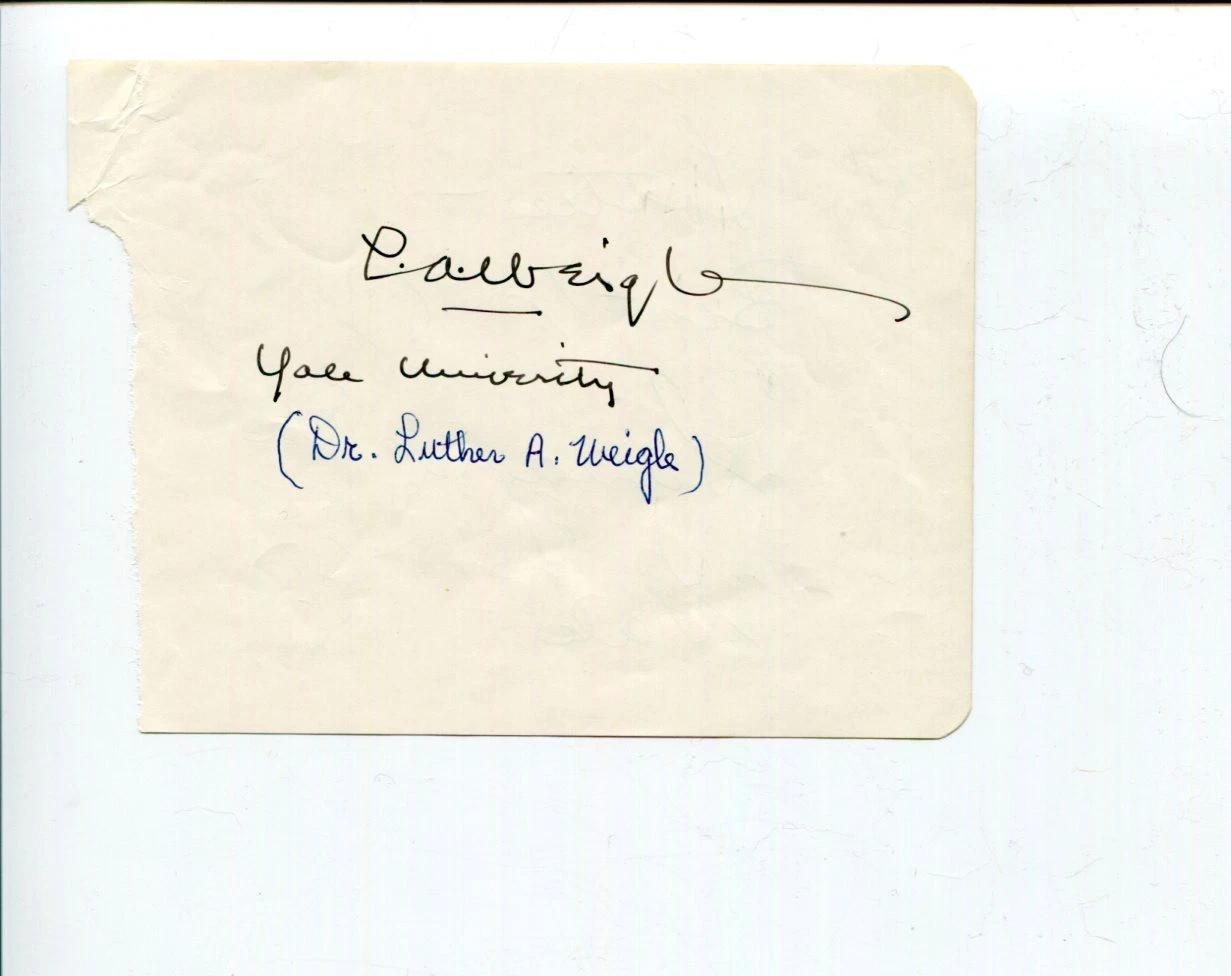 L.A. Weigle
Yale University
(Dr. Luther A. Weigle)